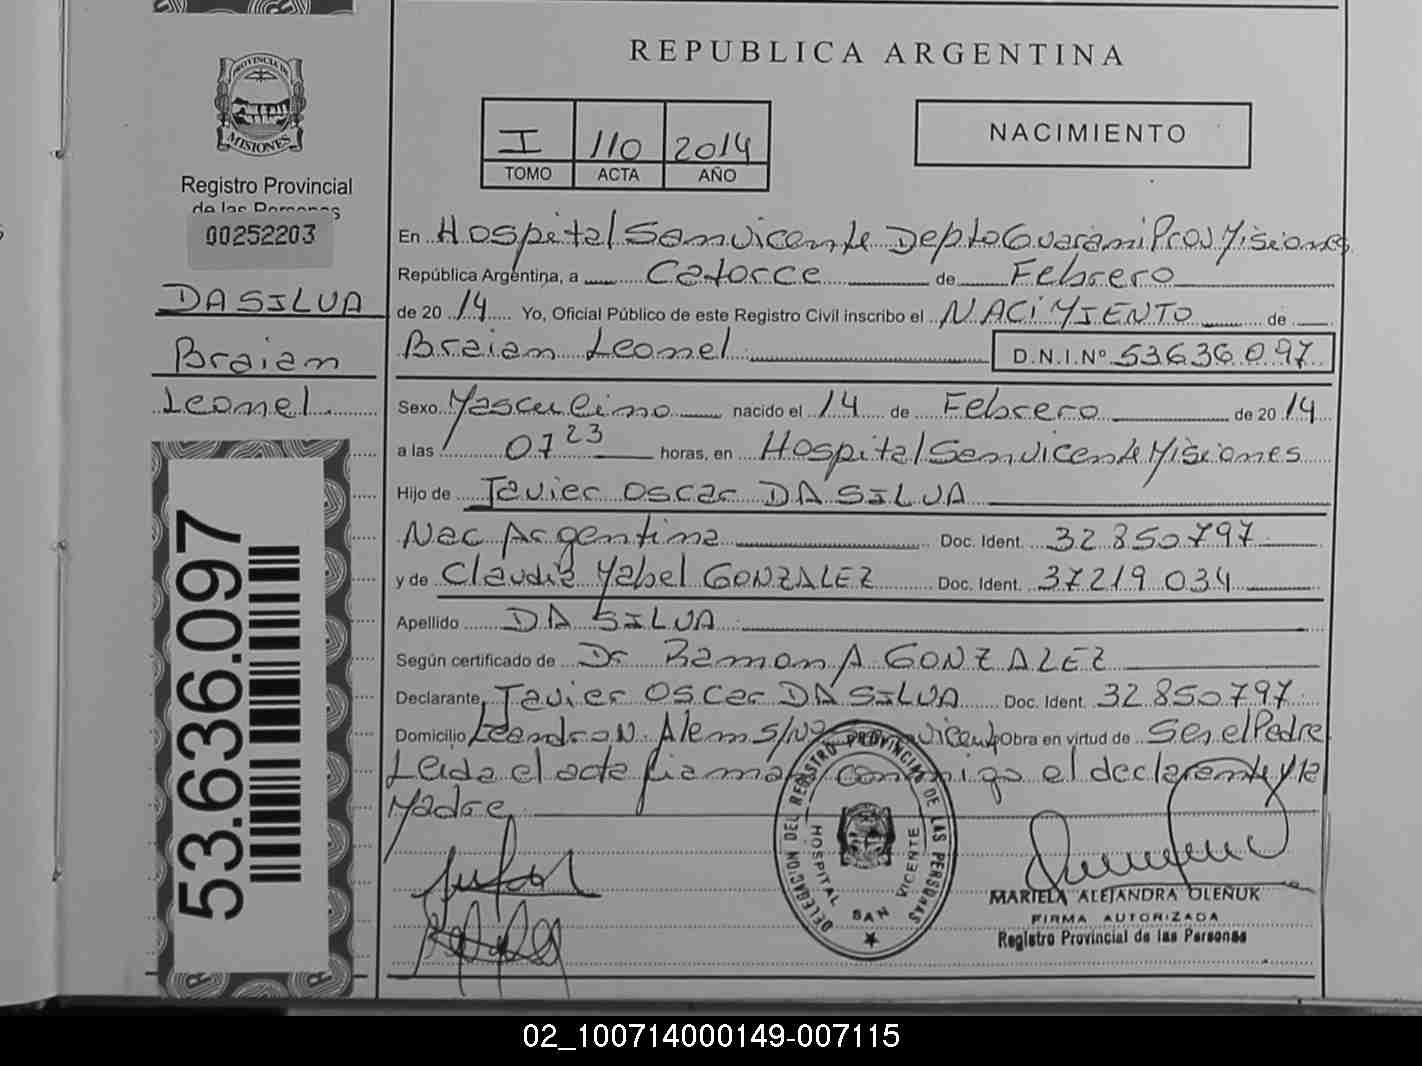 PROVINCIA DE
MISIONES
Registro Provincial
de las Personas
00252203
DA SILVA
Braian
Leonel
53.636.097
REPUBLICA ARGENTINA
I 110 2014
TOMO ACTA AÑO
NACIMIENTO
En Hospital San Vicente Depto Guarani Prov Misiones
República Argentina, a Catorce de Febrero
de 20 14 Yo, Oficial Público de este Registro Civil inscribo el NACIMIENTO de
Braian Leonel D.N.I.Nº 53636097
Sexo Masculino nacido el 14 de Febrero de 20 14
a las 07 23 horas, en Hospital San Vicente Misiones
Hijo de Javier Oscar DA SILVA
Nac Argentina Doc. Ident. 32.850.797
y de Claudia Mabel GONZALEZ Doc. Ident. 37219.034
Apellido DA SILVA
Según certificado de Dr Ramon A GONZALEZ
Declarante Javier Oscar DA SILVA Doc. Ident. 32850797
Domicilio Leandro N. Alem S/Nº Vicente Obra en virtud de Ser el Padre
Leida el acta firman conmigo el declarante y la
Madre
DELEGACION DEL REGISTRO PROVINCIAL DE LAS PERSONAS
HOSPITAL SAN VICENTE
MARIELA ALEJANDRA OLEÑUK
FIRMA AUTORIZADA
Registro Provincial de las Personas
02_100714000149-007115